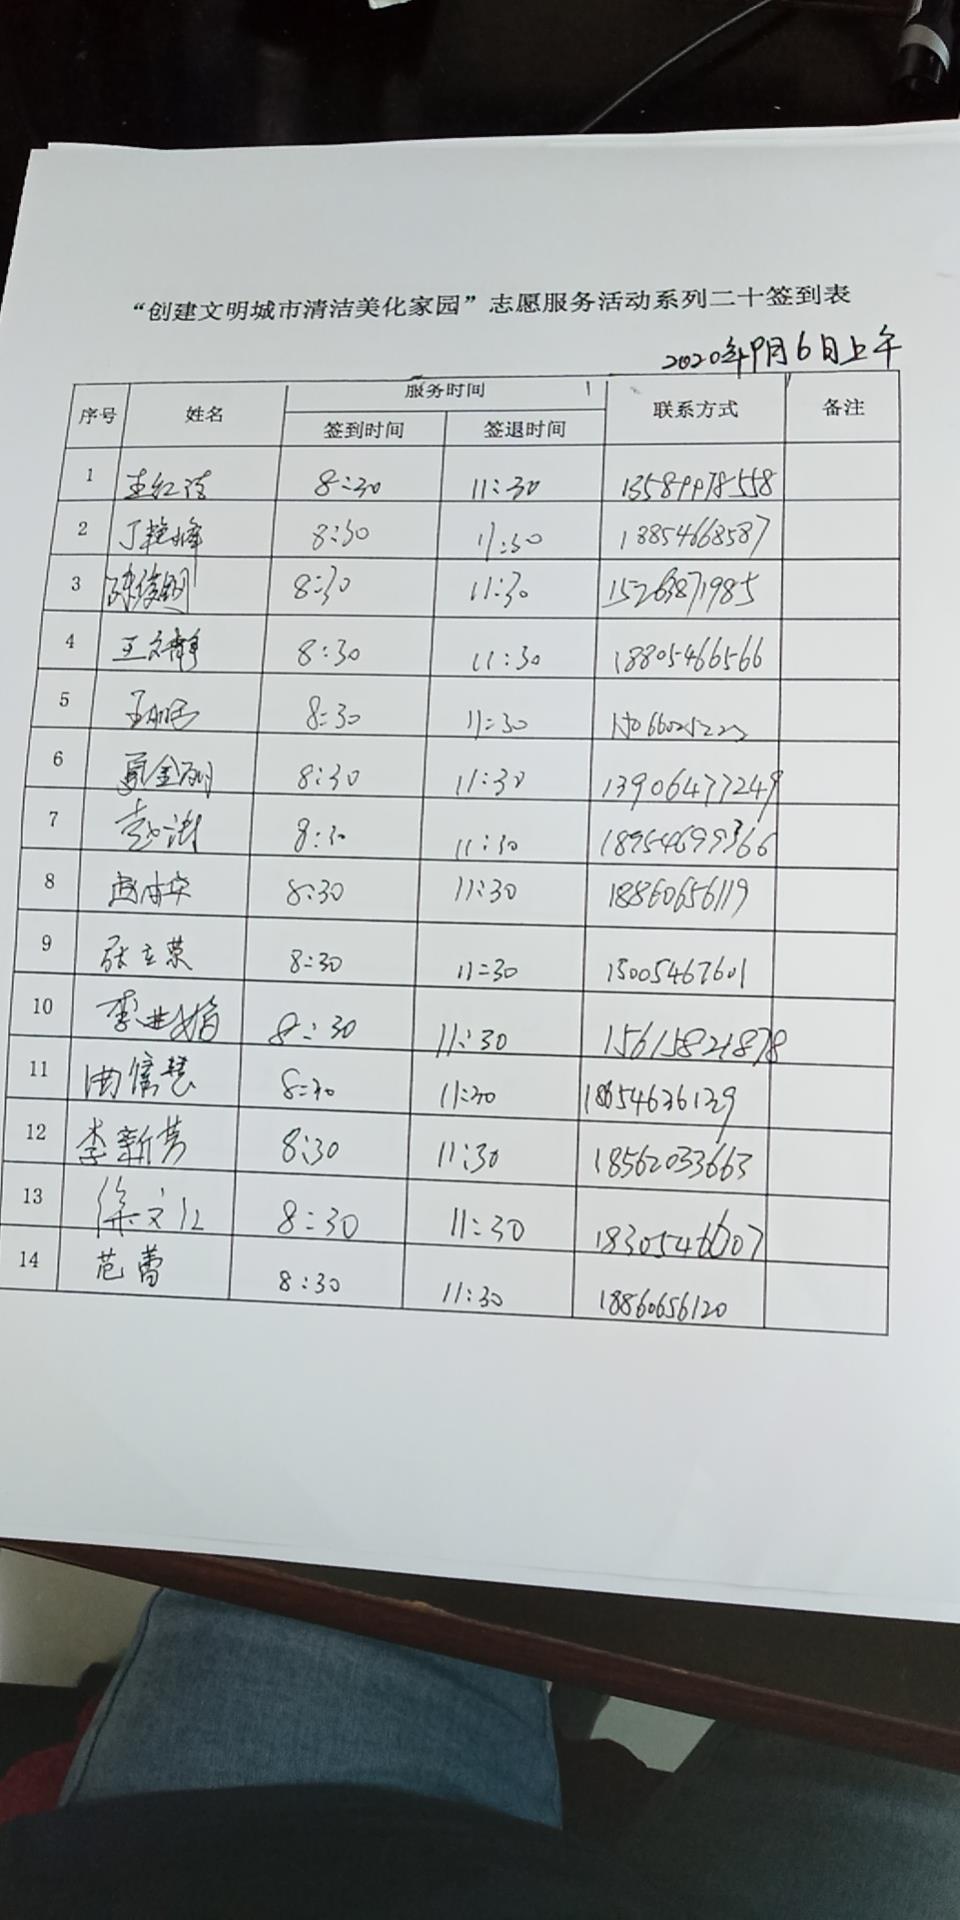 “创建文明城市清洁美化家园”志愿服务活动系列二十签到表
2020年9月6日上午
序号 姓名 服务时间 联系方式 备注
签到时间 签退时间
1 8:30 11:30 13589978558
2 丁艳峰 8:30 11:30 13854668587
3 陈俊明 8:30 11:30 15263871985
4 王文静 8:30 11:30 18805466566
5 8:30 11:30
6 夏金刚 8:30 11:30 13906477249
7 赵澍 8:30 11:30 18954699366
8 8:30 11:30 18860656119
9 张立荣 8:30 11:30 15005467601
10 8:30 11:30 15615821878
11 曲倩慧 8:30 11:30 18654636139
12 李新芳 8:30 11:30 18562033663
13 徐文江 8:30 11:30
14 范蕾 8:30 11:30 18860656120